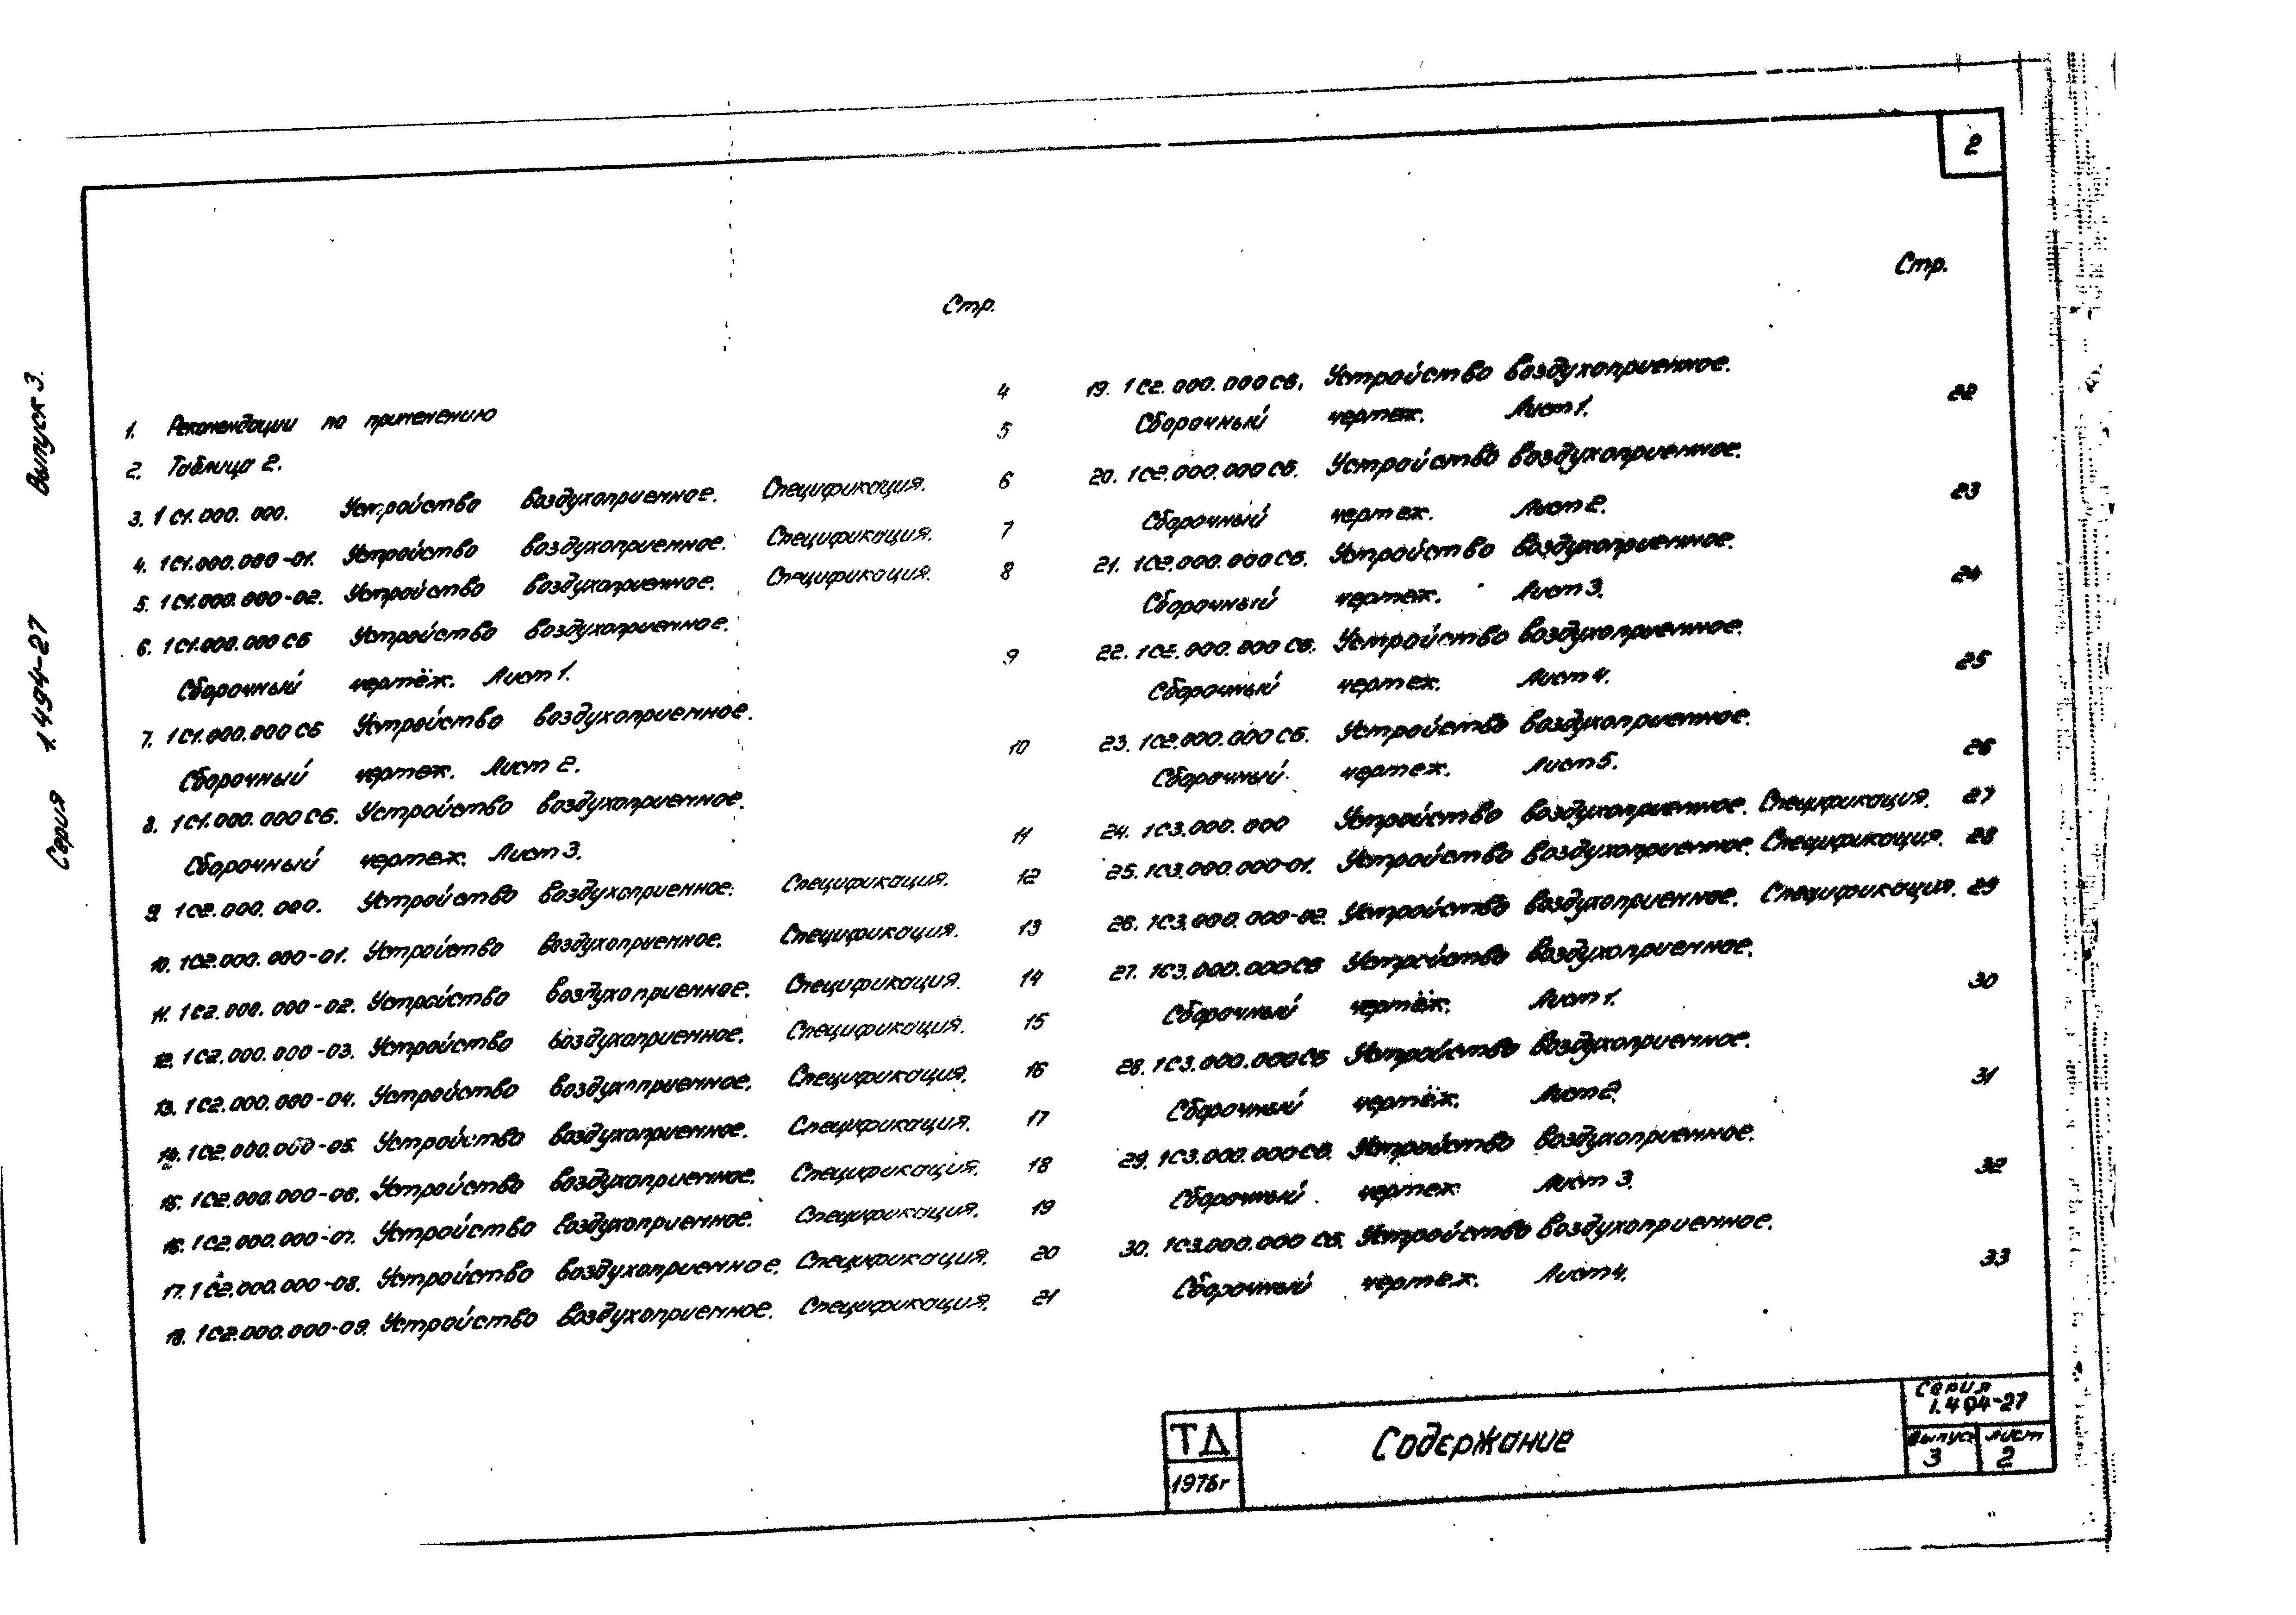 2
Серия 1.494-27 Выпуск 3.
Стр.
1. Рекомендации по применению 4
2. Таблица 2. 5
3. 1С1.000.000. Устройство воздухоприемное. Спецификация. 6
4. 1С1.000.000-01. Устройство воздухоприемное. Спецификация. 7
5. 1С1.000.000-02. Устройство воздухоприемное. Спецификация. 8
6. 1С1.000.000СБ Устройство воздухоприемное.
Сборочный чертёж. Лист 1. 9
7. 1С1.000.000СБ Устройство воздухоприемное.
Сборочный чертеж. Лист 2. 10
8. 1С1.000.000СБ. Устройство воздухоприемное.
Сборочный чертеж. Лист 3. 11
9. 1С2.000.000. Устройство воздухоприемное. Спецификация. 12
10. 1С2.000.000-01. Устройство воздухоприемное. Спецификация. 13
11. 1С2.000.000-02. Устройство воздухоприемное. Спецификация. 14
12. 1С2.000.000-03. Устройство воздухоприемное. Спецификация. 15
13. 1С2.000.000-04. Устройство воздухоприемное. Спецификация. 16
14. 1С2.000.000-05. Устройство воздухоприемное. Спецификация. 17
15. 1С2.000.000-06. Устройство воздухоприемное. Спецификация. 18
16. 1С2.000.000-07. Устройство воздухоприемное. Спецификация. 19
17. 1С2.000.000-08. Устройство воздухоприемное. Спецификация. 20
18. 1С2.000.000-09. Устройство воздухоприемное. Спецификация. 21
Стр.
19. 1С2.000.000СБ. Устройство воздухоприемное.
Сборочный чертеж. Лист 1. 22
20. 1С2.000.000СБ. Устройство воздухоприемное.
Сборочный чертеж. Лист 2. 23
21. 1С2.000.000СБ. Устройство воздухоприемное.
Сборочный чертеж. Лист 3. 24
22. 1С2.000.000СБ. Устройство воздухоприемное.
Сборочный чертеж. Лист 4. 25
23. 1С2.000.000СБ. Устройство воздухоприемное.
Сборочный чертеж. Лист 5. 26
24. 1С3.000.000 Устройство воздухоприемное. Спецификация. 27
25. 1С3.000.000-01. Устройство воздухоприемное. Спецификация. 28
26. 1С3.000.000-02. Устройство воздухоприемное. Спецификация. 29
27. 1С3.000.000СБ Устройство воздухоприемное.
Сборочный чертёж. Лист 1. 30
28. 1С3.000.000СБ Устройство воздухоприемное.
Сборочный чертёж. Лист 2. 31
29. 1С3.000.000СБ. Устройство воздухоприемное.
Сборочный чертеж Лист 3. 32
30. 1С3.000.000СБ. Устройство воздухоприемное.
Сборочный чертеж. Лист 4. 33
ТД
1976г
Содержание
Серия
1.494-27
Выпуск Лист
3 2